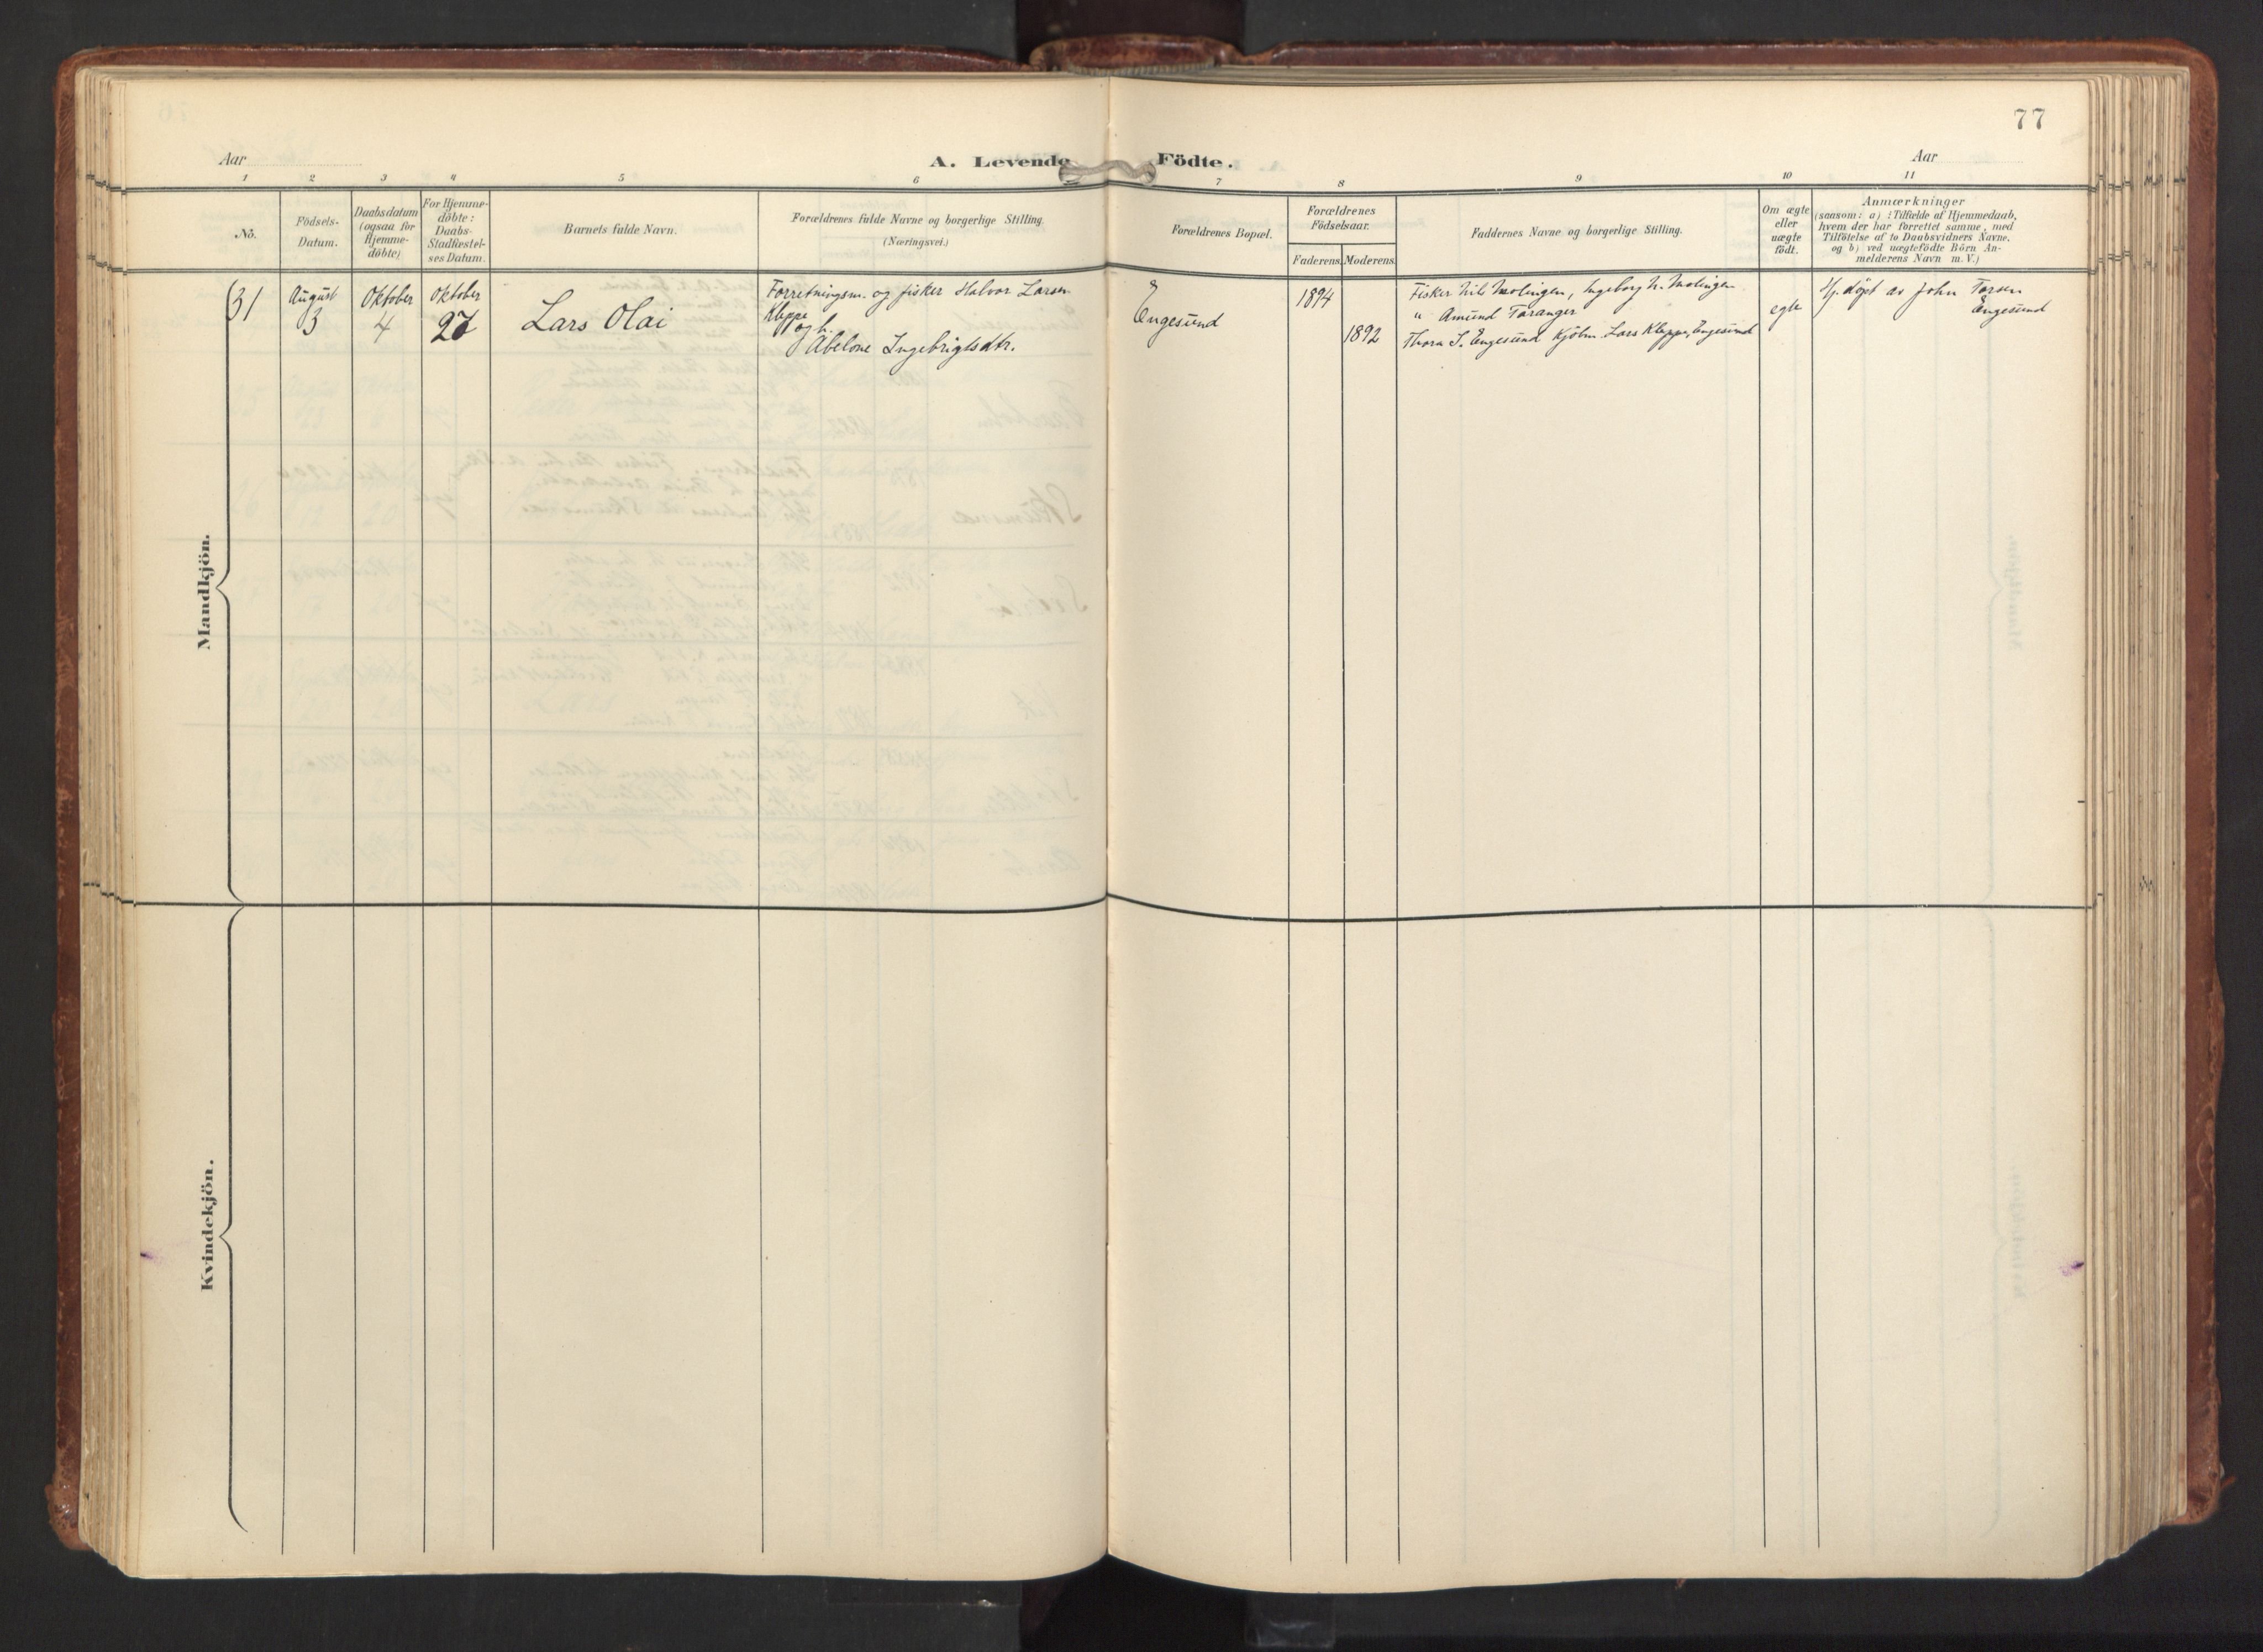 77
Aar
A. Levende Födte.
Aar
1 2 3 4 5 6 7 8 9 10 11
No.
Födsels-
Datum.
Daabsdatum
(ogsaa for
Hjemme-
döbte)
For Hjemme-
döbte:
Daabs-
Stadfestel-
ses Datum.
Barnets fulde Navn.
Forældrenes fulde Navne og borgerlige Stilling.
(Næringsvei.)
Forældrenes Bopæl.
Forældrenes
Födselsaar.
Faderens. Moderens.
Faddernes Navne og borgerlige Stilling.
Om ægte
eller
uægte
födt.
Anmærkninger
(saasom: a) i Tilfælde af Hjemmedaab,
hvem der har forrettet samme, med
Tilföielse af to Daabsvidners Navne,
og b) ved uægtefödte Börn An-
melderens Navn m. V.)
Mandkjön.
31
August
3
Oktober
4
Oktober
27
Lars Olai
Forretningsm. og fisker Halvor Larsen
Kleppe
og h.
Abelone Ingebrigtsdtr.
Engesund
1894
1892
Fisker Nils Molingen, Ingeborg N. Molingen
" Amund Taranger
Thora I. Engesund Kjöbm. Lars Kleppe, Engesund
egte
Hj. döpt av John Torsen
Engesund
Kvindekjön.